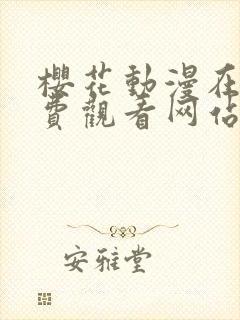 櫻花動漫在
費觀看网佔
安雅堂